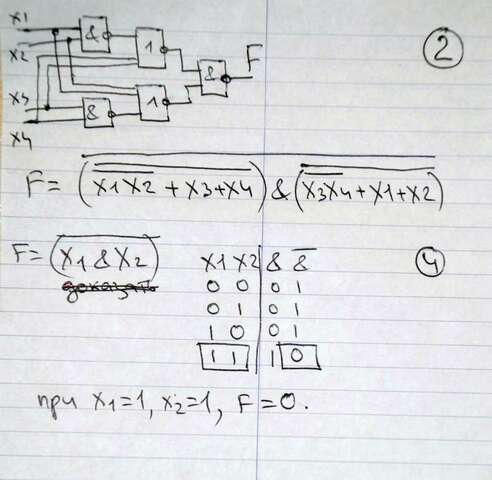 X1
X2
X3
X4
& 1 & F
& 1
2
F= (X̅1̅ ̅X̅2̅ + X3+X4) & (X̅3̅X̅4̅+X1+X2)
F= (X1 & X2)
4
X1 X2 & &̅
0 0 0 1
0 1 0 1
1 0 0 1
1 1 1 0
при X1=1, X2=1, F=0.